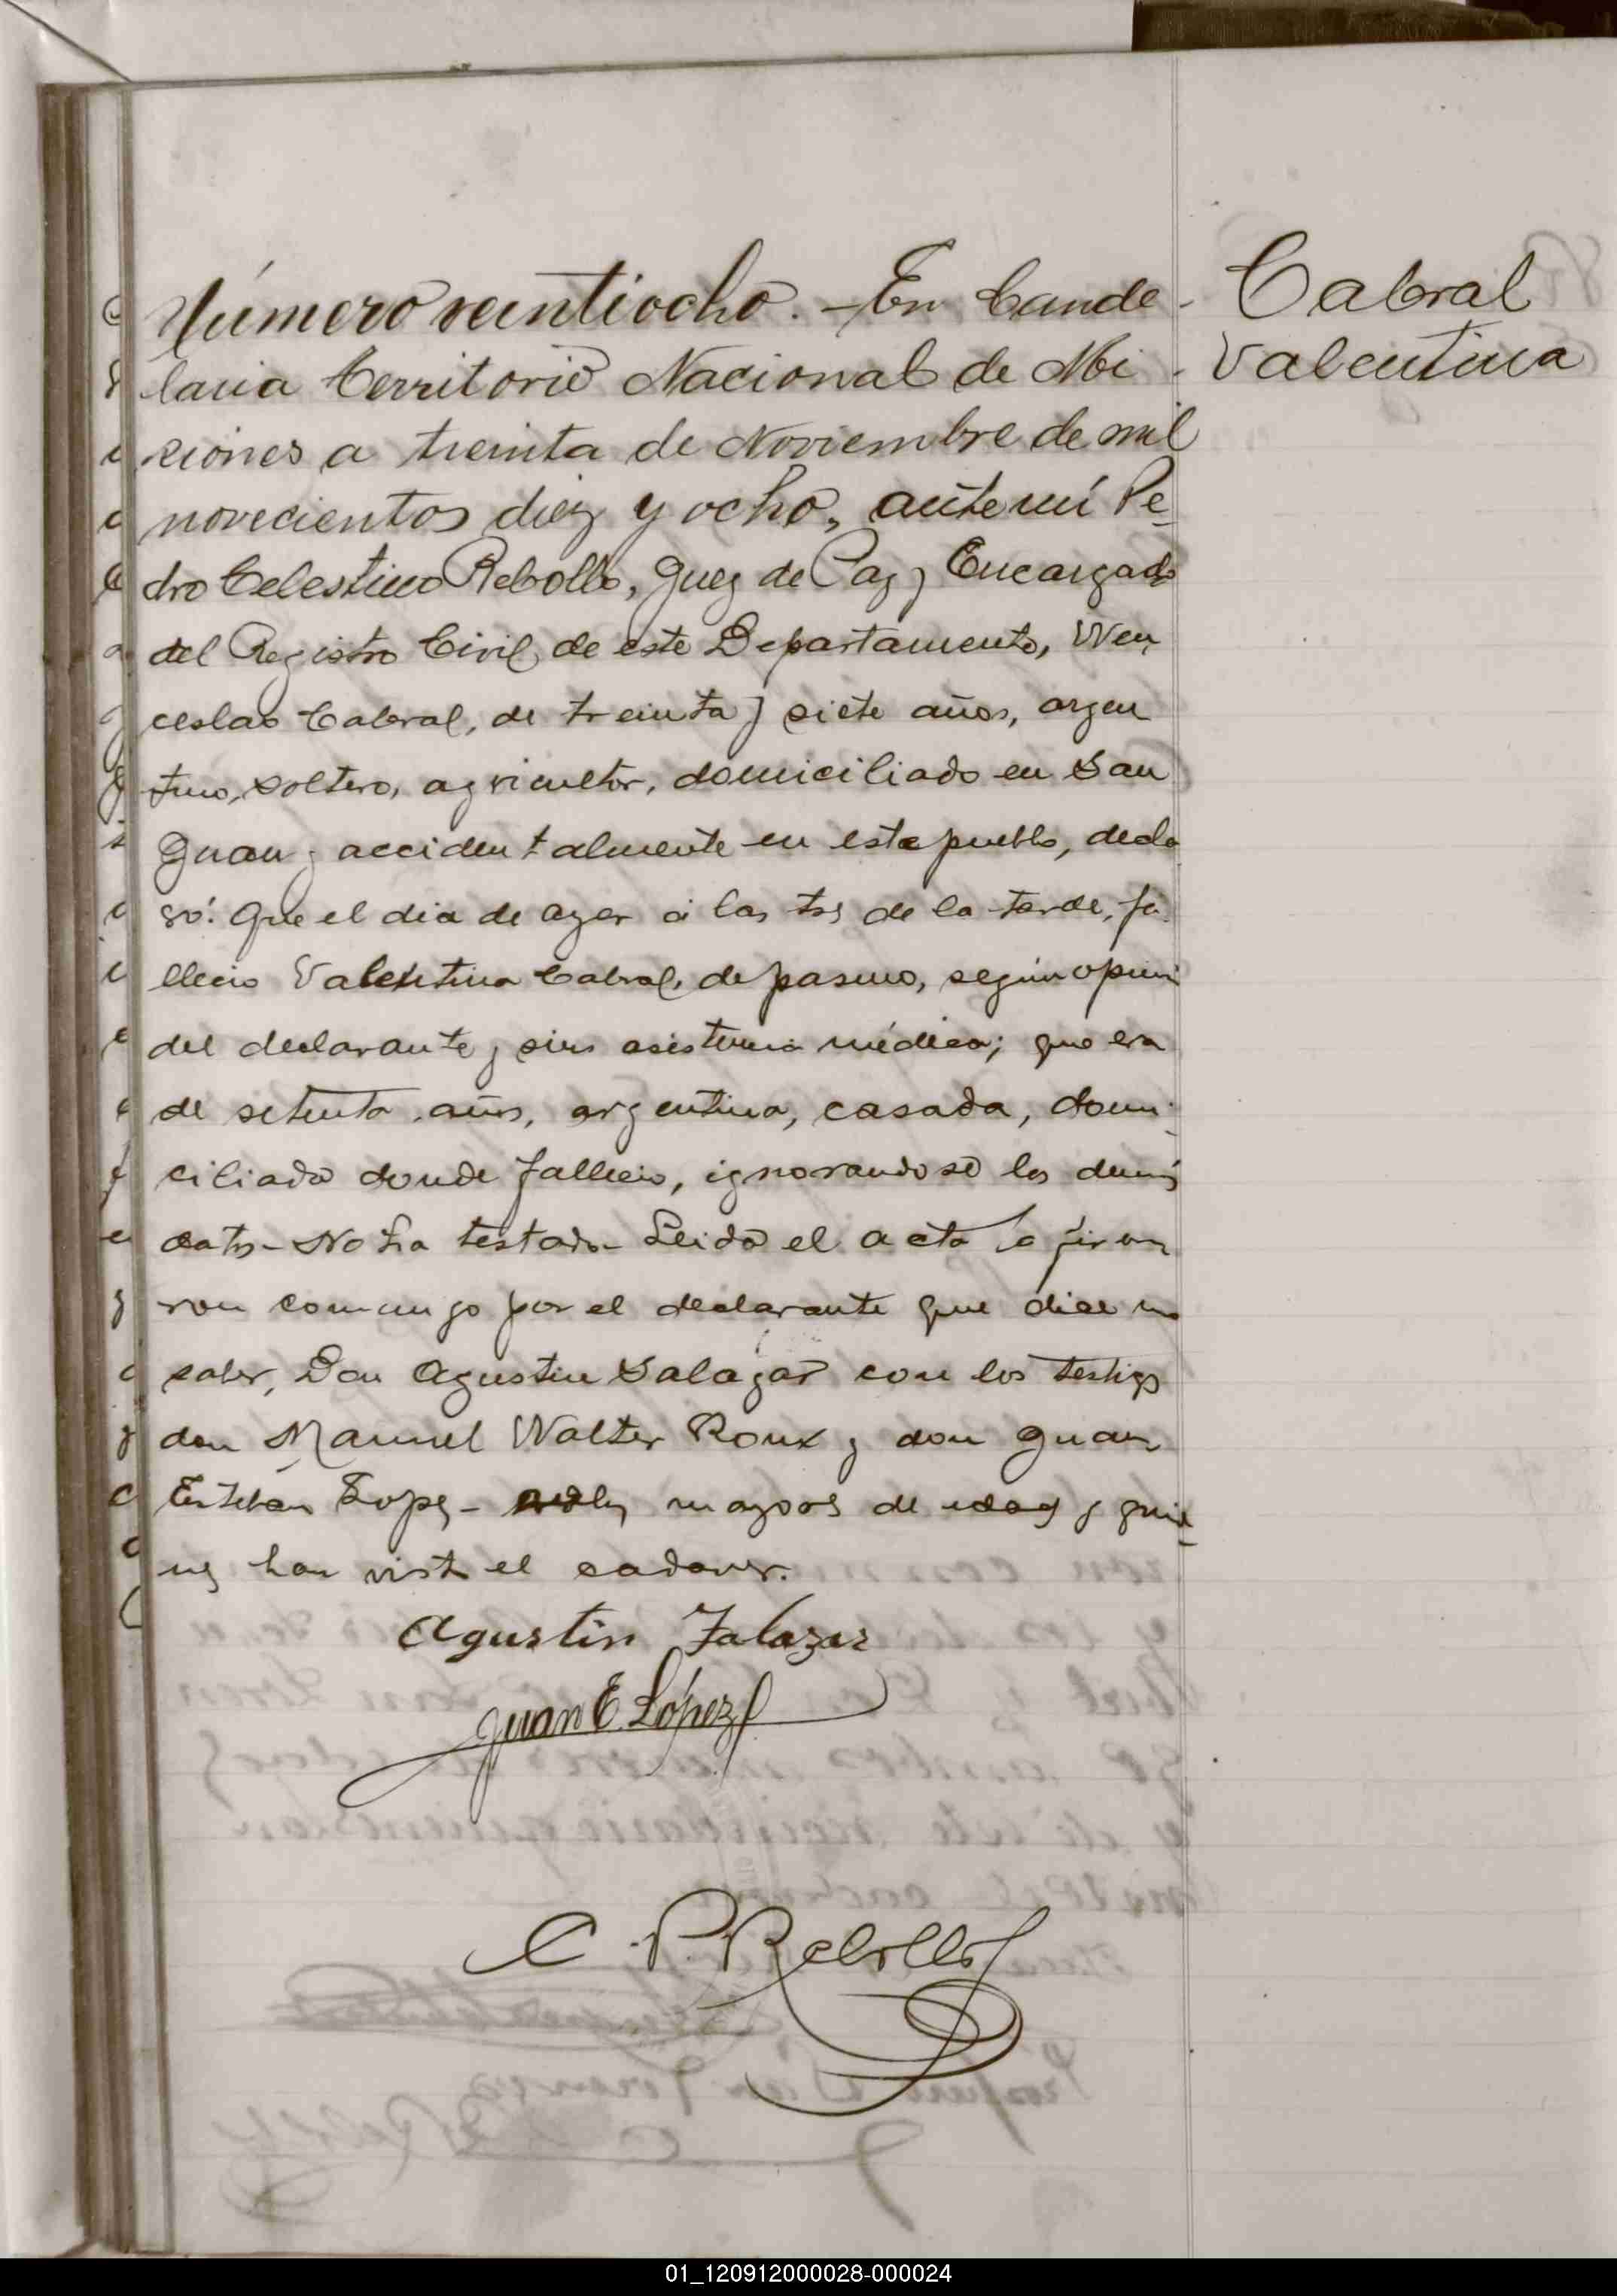 Cabral
Valentina
Número veintiocho. - En Cande-
laria Territorio Nacional de Mi-
siones a treinta de Noviembre de mil
novecientos diez y ocho, ante mí Pe-
dro Celestino Rebollo, Juez de Paz y Encargado
del Registro Civil de este Departamento, Wen
ceslao Cabral, de treinta y siete años, argen
tino, soltero, agricultor, domiciliado en San
Juan y accidentalmente en este pueblo, decla
ró: Que el dia de ayer á las tres de la tarde, fa-
llecio Valentina Cabral, de pasmo, según opini
del declarante y sin asistencia médica; que era
de setenta años, argentina, casada, domi-
ciliada donde fallecio, ignorandose los demás
datos - No ha testado - Leida el acta la firma
ron conmigo por el declarante que dice no
saber, Don Agustin Salazar con los testigos
don Manuel Walter Roux y don Juan
Estebán Lopez - mayores de edad y quie-
nes han visto el cadaver.
Agustin Zalazar
Juan E. López
C. P. Rebollo
01_120912000028-000024